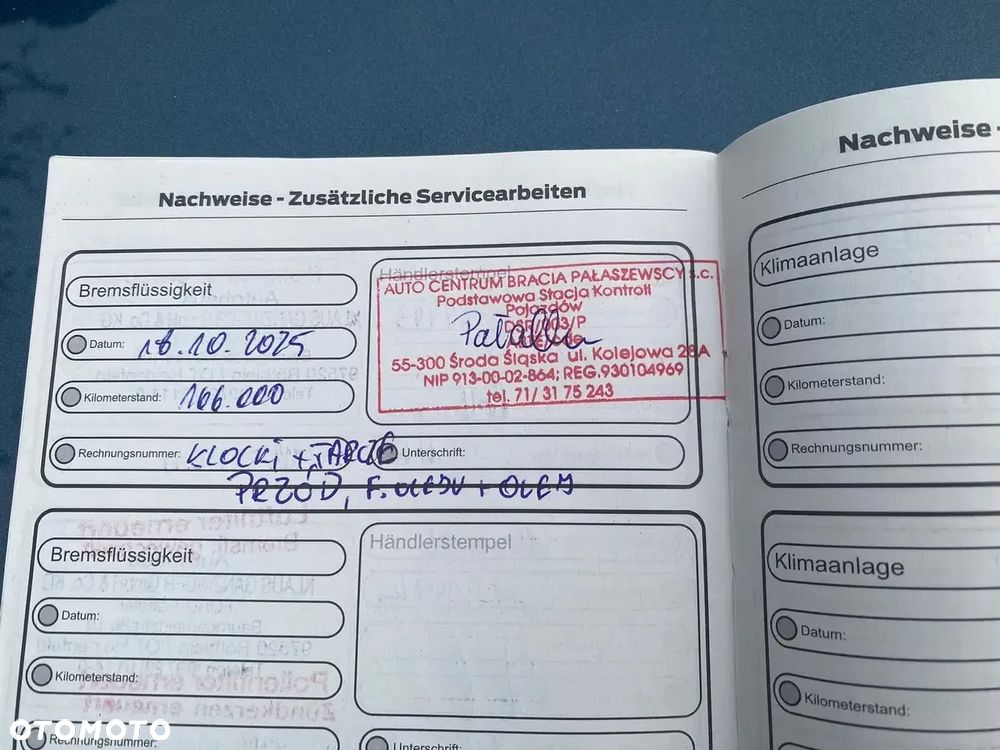 Nachweise - Zusätzliche Servicearbeiten
Bremsflüssigkeit
Datum: 18.10.2025
Kilometerstand: 166.000
Rechnungsnummer: KLOCKI + TARCZE
PRZÓD, F. OLEJU + OLEJ
Händlerstempel
AUTO CENTRUM BRACIA PAŁASZEWSCY s.c.
Podstawowa Stacja Kontroli
Pojazdów
55-300 Środa Śląska ul. Kolejowa 28A
NIP 913-00-02-864; REG.930104969
tel. 71/ 31 75 243
Unterschrift:
Bremsflüssigkeit
Datum:
Kilometerstand:
Rechnungsnummer:
Händlerstempel
Unterschrift:
Nachweise -
Klimaanlage
Datum:
Kilometerstand:
Rechnungsnummer:
Klimaanlage
Datum:
Kilometerstand:
OTOMOTO